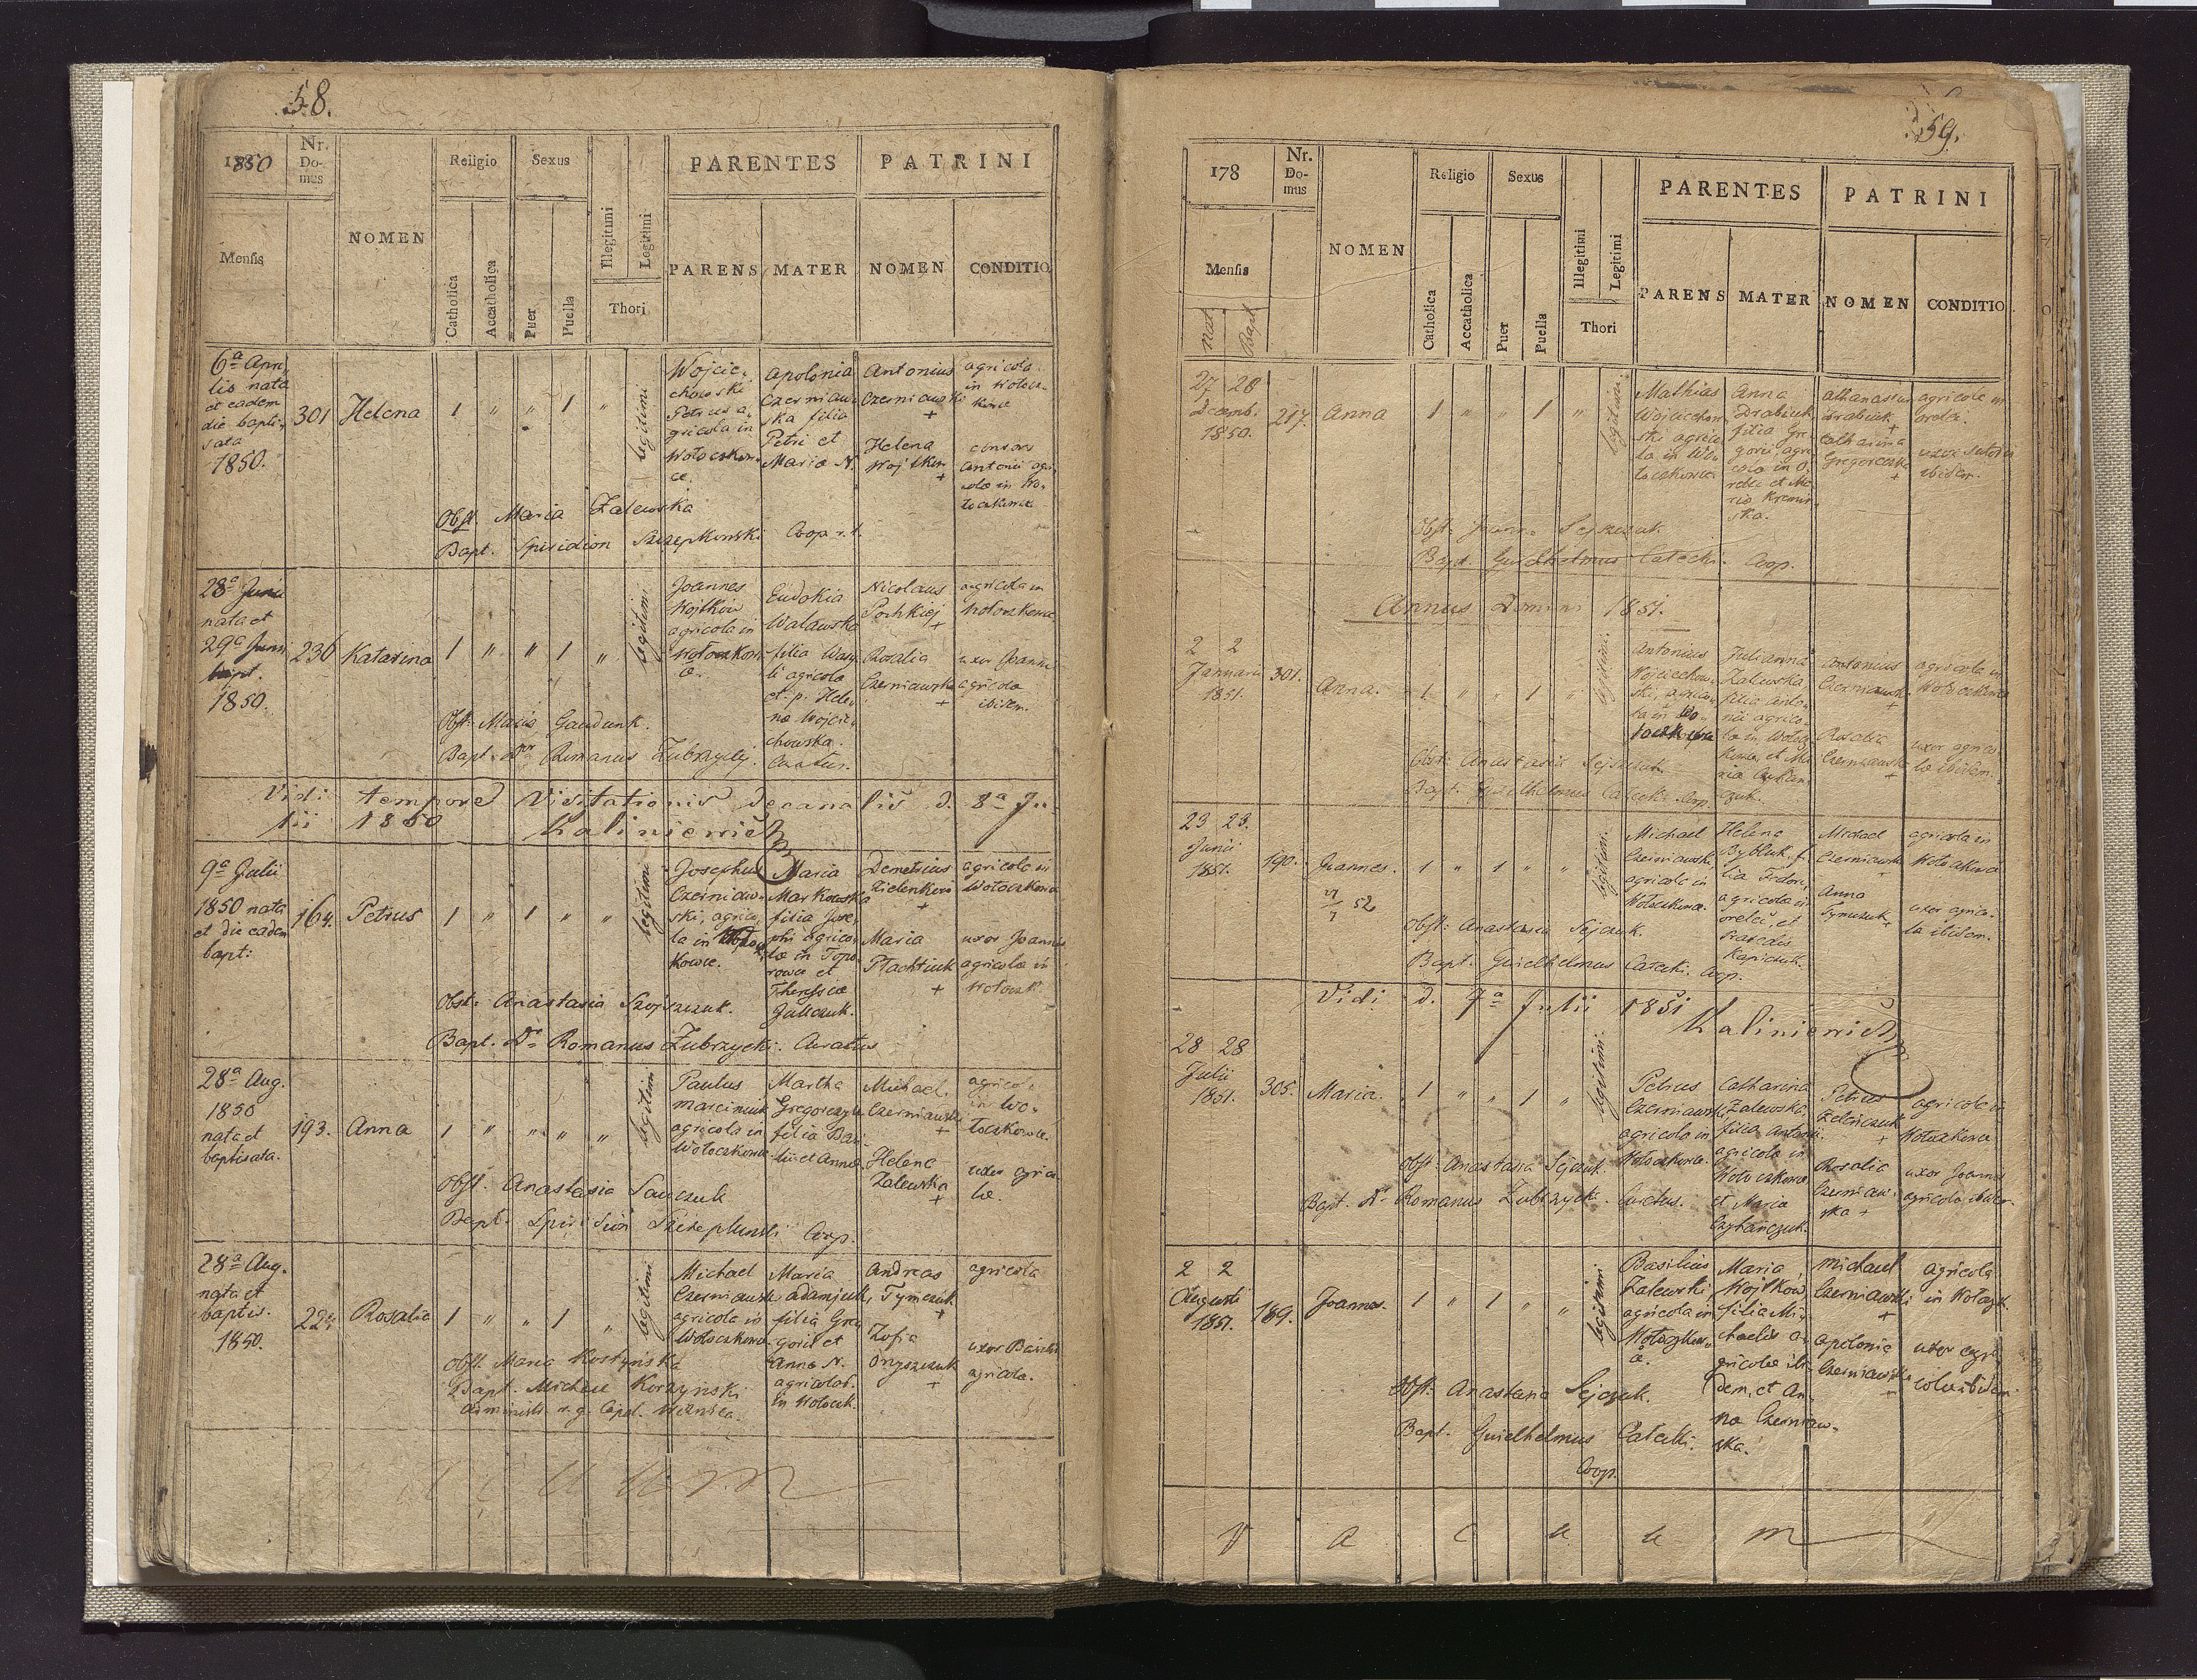 58.
1850
Nr. Domus
NOMEN
Religio
Sexus
PARENTES
PATRINI
Mensis
Catholica
Accatholica
Puer
Puella
Illegitimi
Legitimi
Thori
PARENS
MATER
NOMEN
CONDITIO
6ª Apri
lis nata
et eadem
die bapti
sata
1850.
301
Helena
1 " " 1 "
legitimi
Wojcie
chowski
Petrus a
gricola in
Wołoczkow
ce.
Apolonia
Czerniaw
ska filia
Petri et
Maria N.
Antonius
Czerniawski
+
Helena
Wojtkow
+
agricola
in Wołocz
kowce
consors
Antonii agri
colæ in Wo
łoczkowce
Obst. Maria Zalewska
Bapt. Spiridion Szczepkowski Coop.
28ª Junii
nata et
29ª Junii
bapt.
1850.
236
Katarina
1 " " 1 "
legitimi
Joannes
Wojtkow
agricola in
Wołoczkow
ce.
Eudokia
Walawska
filia Wasy
li agricola
et p. Hele
na Wojcie
chowska.
Nicolaus
+
Rosalia
Czerniawska
+
agricola in
Wołoczkowce
uxor Joannis
agricola
ibidem.
Obst. Maria Gaudunk.
Bapt. Dr Romanus Zubrzycki. Curatus.
Vidi tempore Visitationis Decanalis d. 8ª Ju-
lii 1850 Kaliniewicz
9ª Julii
1850 nata
et die eadem
bapt:
164.
Petrus
1 " 1 " "
legitimi
Josephus
Czerniaw
ski, agrico
la in
kowce.
Maria
Markowska
filia Jose
phi agrico
læ in Topo
rowce et
Demetrius
+
Maria
+
agricola in
Wołoczkowce
uxor Joannis
agricolæ in
Wołoczk.
Obst. Anastasia
Bapt. Dr Romanus Zubrzycki. Curatus
28ª Aug.
1850
nata et
baptisata.
193.
Anna
1 " " " "
legitimi
Paulus
Marciniuk
agricola in
Wołoczkowce
Martha
filia Basi
lii et Anna
Michael
Czerniawski
+
Helena
Zalewska
+
agricola
in Wo
łoczkowce.
uxor agrico
læ.
Obst. Anastasia
Bapt. Spiridion Coop.
28ª Aug.
nata et
baptis.
1850.
Rosalia
1 " " 1 "
legitimi
Michael
Czerniawski
agricola in
Wołoczkowce
Maria
Adamiuk
filia Gre
gorii et
Anna N.
agricolar.
in Wołoczk.
Andreas
Tymczuk
Zofia
Onyszczuk
+
agricola
uxor Basilii
agricola.
Obst. Maria Kostyńska
Bapt. Michael Korzyński
administ. r. g. Capel.
V a c u u m
59.
178
Nr. Domus
NOMEN
Religio
Sexus
PARENTES
PATRINI
Mensis
Nat.
Bapt.
Catholica
Accatholica
Puer
Puella
Illegitimi
Legitimi
Thori
PARENS
MATER
NOMEN
CONDITIO
27 28
Decemb.
1850.
217.
Anna
1 " " 1 "
legitimi
Mathias
Wojciechow
ski agrico
la in Wo
łoczkowce
Anna
Drabiuk
filia Gre
gorii, agri
cola in O
relec et Ma
ria Kremin
ska.
Athanasius
Drabiuk
+
Catharina
+
agricola in
orelec.
ibidem.
Obst:
Bapt. Guielhelmus Coop.
Annus Domini 1851.
2 2
Januarii
1851.
301.
Anna.
1 " " 1 "
legitimi
Antonius
Wojciechow
ski, agrico
la in Wo
łoczkowce
Julianna
Zalewska
filia Anto
nii agrico
la in Wołocz
kowce, et Ma
ria
Antonius
Czerniawski
+
Rosalia
Czerniawska
+
agricola in
Wołoczkowce
uxor agrico
læ ibidem.
Obst: Anastasia
Bapt. Guielhelmus Coop.
23 23.
Junii
1851.
190.
Joannes.
1 " 1 " "
legitimi
Michael
Czerniawski
agricola in
Wołoczkowce.
Helena
fi
lia Fedori,
agricola in
orelec, et
Michael
Czerniawski
Anna
Tymczuk
+
agricola in
Wołoczkowce
uxor agrico
la ibidem.
Obst: Anastasia Sejczuk.
Bapt. Guielhelmus Coop.
Vidi d. 7ª Julii 1851 Kaliniewicz
28 28
Julii
1851.
305.
Maria.
1 " " 1 "
legitimi
Petrus
Czerniawski
agricola in
Wołoczkowce.
Catharina
Zalewska,
filia Antonii
agricola in
Wołoczkowce
et Maria
Petrus
+
Rosalia
Czerniaw
ska +
agricola in
Wołoczkowce
uxor Joannis
agricola ibidem.
Obst: Anastasia Sejczuk.
Bapt. Dr Romanus Zubrzycki. Curatus.
2 2
Augusti
1851.
189.
Joannes.
1 " 1 " "
legitimi
Basilius
Zalewski
agricola in
Wołoczkow
ce.
Maria
Wojtkow
filia Mi
chaelis a
gricolæ ibi
dem, et An
na Czerniaw
ska.
Michael
Czerniawski
+
Apolonia
Czerniawska
+
agricola
in Wołoczk.
uxor agri
colæ ibidem
Obst: Anastasia Sejczuk.
Bapt. Guielhelmus
Coop.
V a c u u m